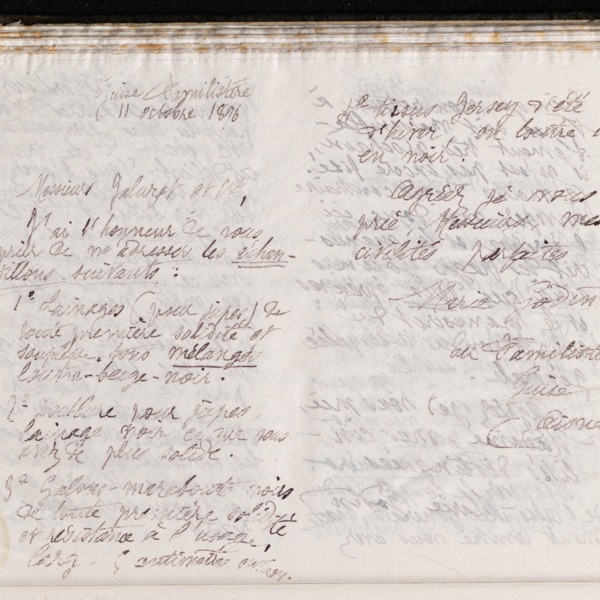 Guise Familistère
11 octobre 1896
Messieurs Jaluzot et Cie,
J'ai l'honneur de vous
prier de m'adresser les échan-
tillons suivants :
1° Lainages (pour jupes) de
toute première solidité et
souplesse, tons mélangés
loutre-beige-noir.
2° Doublure pour jupes,
lainage noir ce que vous
avez de plus solide.
3° Galons-marabout noirs
de toute première solidité
et résistance à l'usage,
larg. 5 centimètres
4° tissus Jersey d'été
d'hiver en loutre
en noir.
Agréez je vous
prie, Messieurs, mes
civilités parfaites
Marie Godin
du Familist
Guise
Aisne